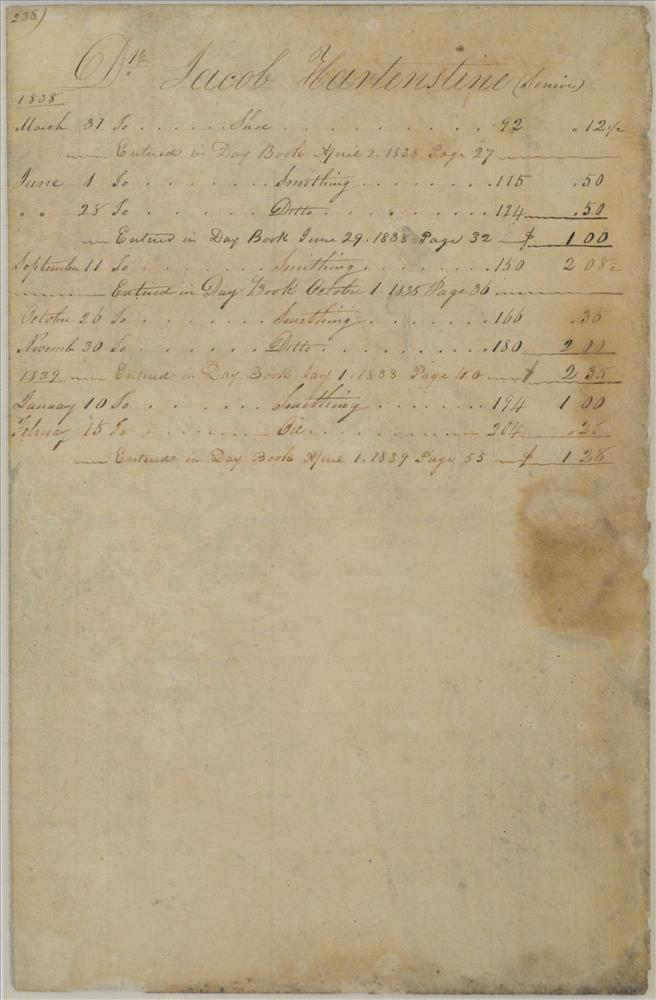 238)
Dr. Jacob Hartenstine (Senior)
1838
March 31 To . . . . . . Shoe . . . . . . . . . . 92 " 12 1/2
Entered in Day Book April 2. 1838 Page 27
June 1 To . . . . . . Smithing . . . . . . . 115 .50
" " 28 To . . . . . . Ditto . . . . . . . . . 124 .50
Entered in Day Book June 29. 1838 Page 32 $ 1 00
September 11 To . . . . . . Smithing . . . . . . . 150 2 08
Entered in Day Book October 1. 1838 Page 36
October 26 To . . . . . . Smithing . . . . . . . 166 .35
Novemb 30 To . . . . . . Ditto . . . . . . . . . 180 2 00
1839 Entered in Day Book Jany 1. 1838 Page 40 $ 2 35
January 10 To . . . . . . Smithing . . . . . . . 194 1 00
February 15 To . . . . . . . . . . . . . . . 204
Entered in Day Book Aprie 1. 1839 Page 55 $ 1 28